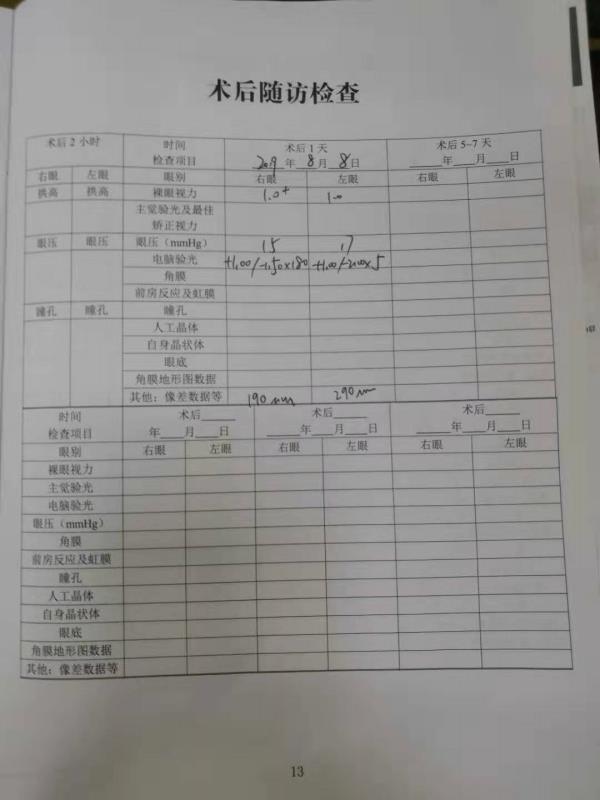 术后随访检查
术后2小时 时间 术后1天 术后5-7天
检查项目 2019年8月8日 ____年____月____日
右眼 左眼 眼别 右眼 左眼 右眼 左眼
拱高 拱高 裸眼视力 1.0+ 1.0
主觉验光及最佳
矫正视力
眼压 眼压 眼压（mmHg） 15 17
电脑验光 +1.00/-1.50×180 +1.00/-2.00×5
角膜
前房反应及虹膜
瞳孔 瞳孔 瞳孔
人工晶体
自身晶状体
眼底
角膜地形图数据
其他：像差数据等 190um 290um
时间 术后____ 术后____ 术后____
检查项目 年____月____日 ____年____月____日 ____年____月____日
眼别 右眼 左眼 右眼 左眼 右眼 左眼
裸眼视力
主觉验光
电脑验光
眼压（mmHg）
角膜
前房反应及虹膜
瞳孔
人工晶体
自身晶状体
眼底
角膜地形图数据
其他：像差数据等
13